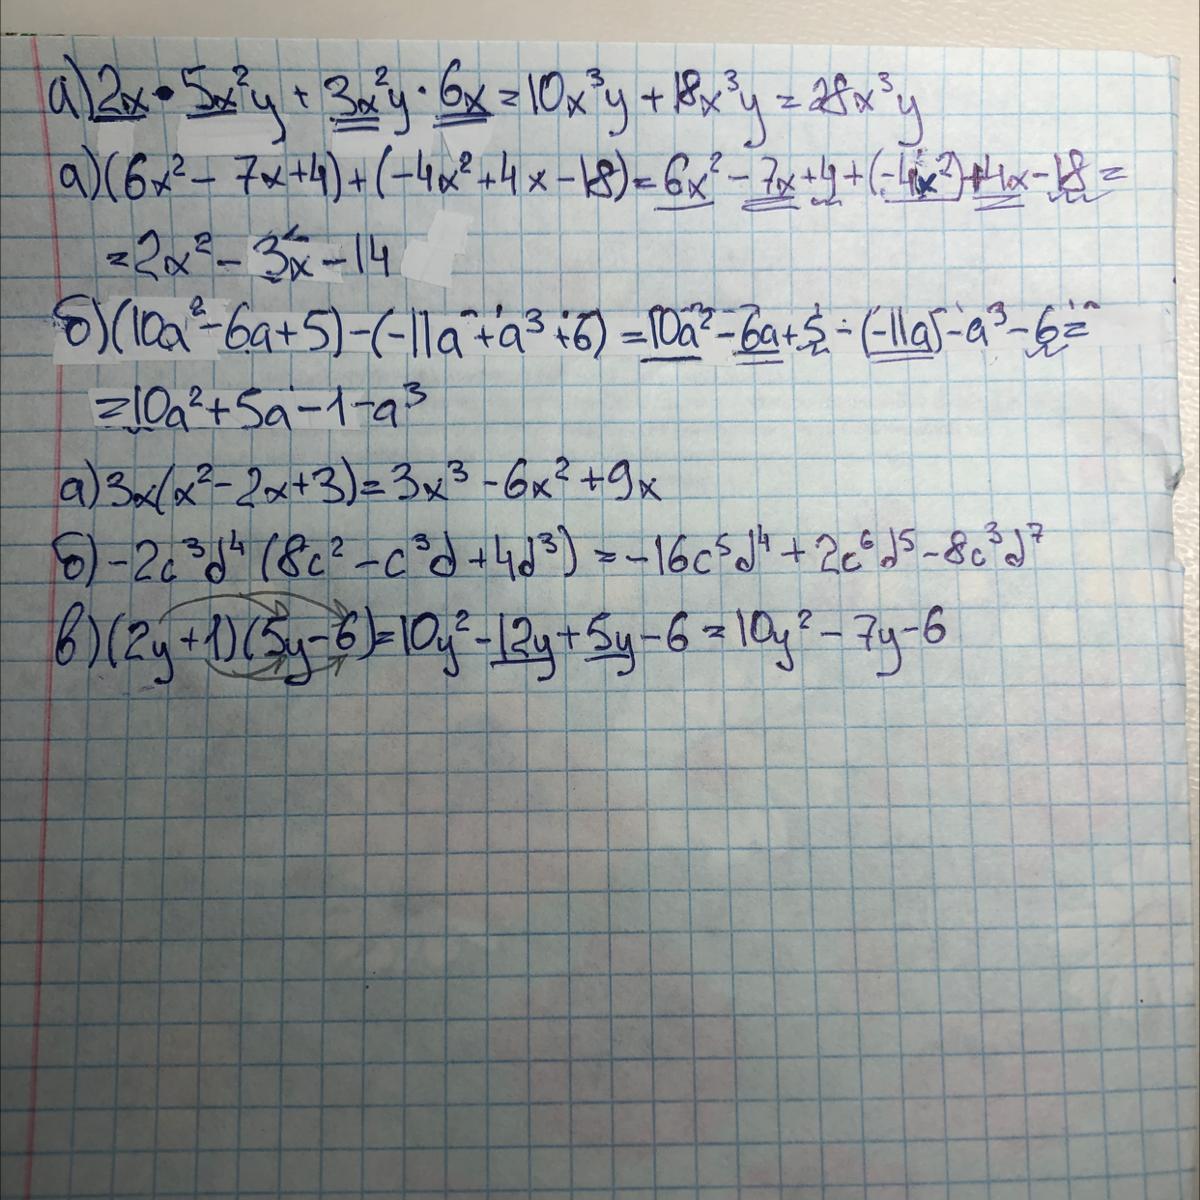 а) 2x · 5x²y + 3x²y · 6x = 10x³y + 18x³y = 28x³y
а) (6x² - 7x + 4) + (-4x² + 4x - 18) = 6x² - 7x + 4 + (-4x²) + 4x - 18 =
= 2x² - 3x - 14
б) (10a² - 6a + 5) - (-11a + a³ + 6) = 10a² - 6a + 5 - (-11a) - a³ - 6 =
= 10a² + 5a - 1 - a³
а) 3x(x² - 2x + 3) = 3x³ - 6x² + 9x
б) -2c³d⁴ (8c² - c³d + 4d³) = -16c⁵d⁴ + 2c⁶d⁵ - 8c³d⁷
в) (2y + 1)(5y - 6) = 10y² - 12y + 5y - 6 = 10y² - 7y - 6